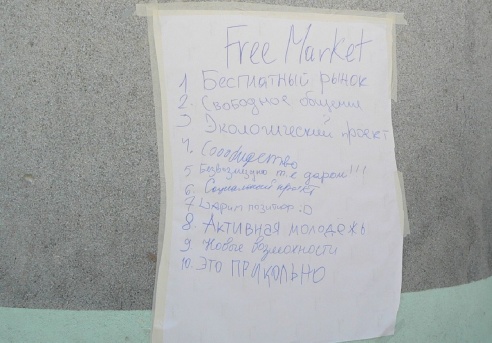 Free Market
1 Бесплатный рынок
2. Свободное общение
3 Экологический проект
4. Сообщество
5 Безвозмездно т е даром!!!
6. Социальный проект
7 Дарим позитив :D
8. Активная молодежь
9 Новые возможности
10. ЭТО ПРИКОЛЬНО